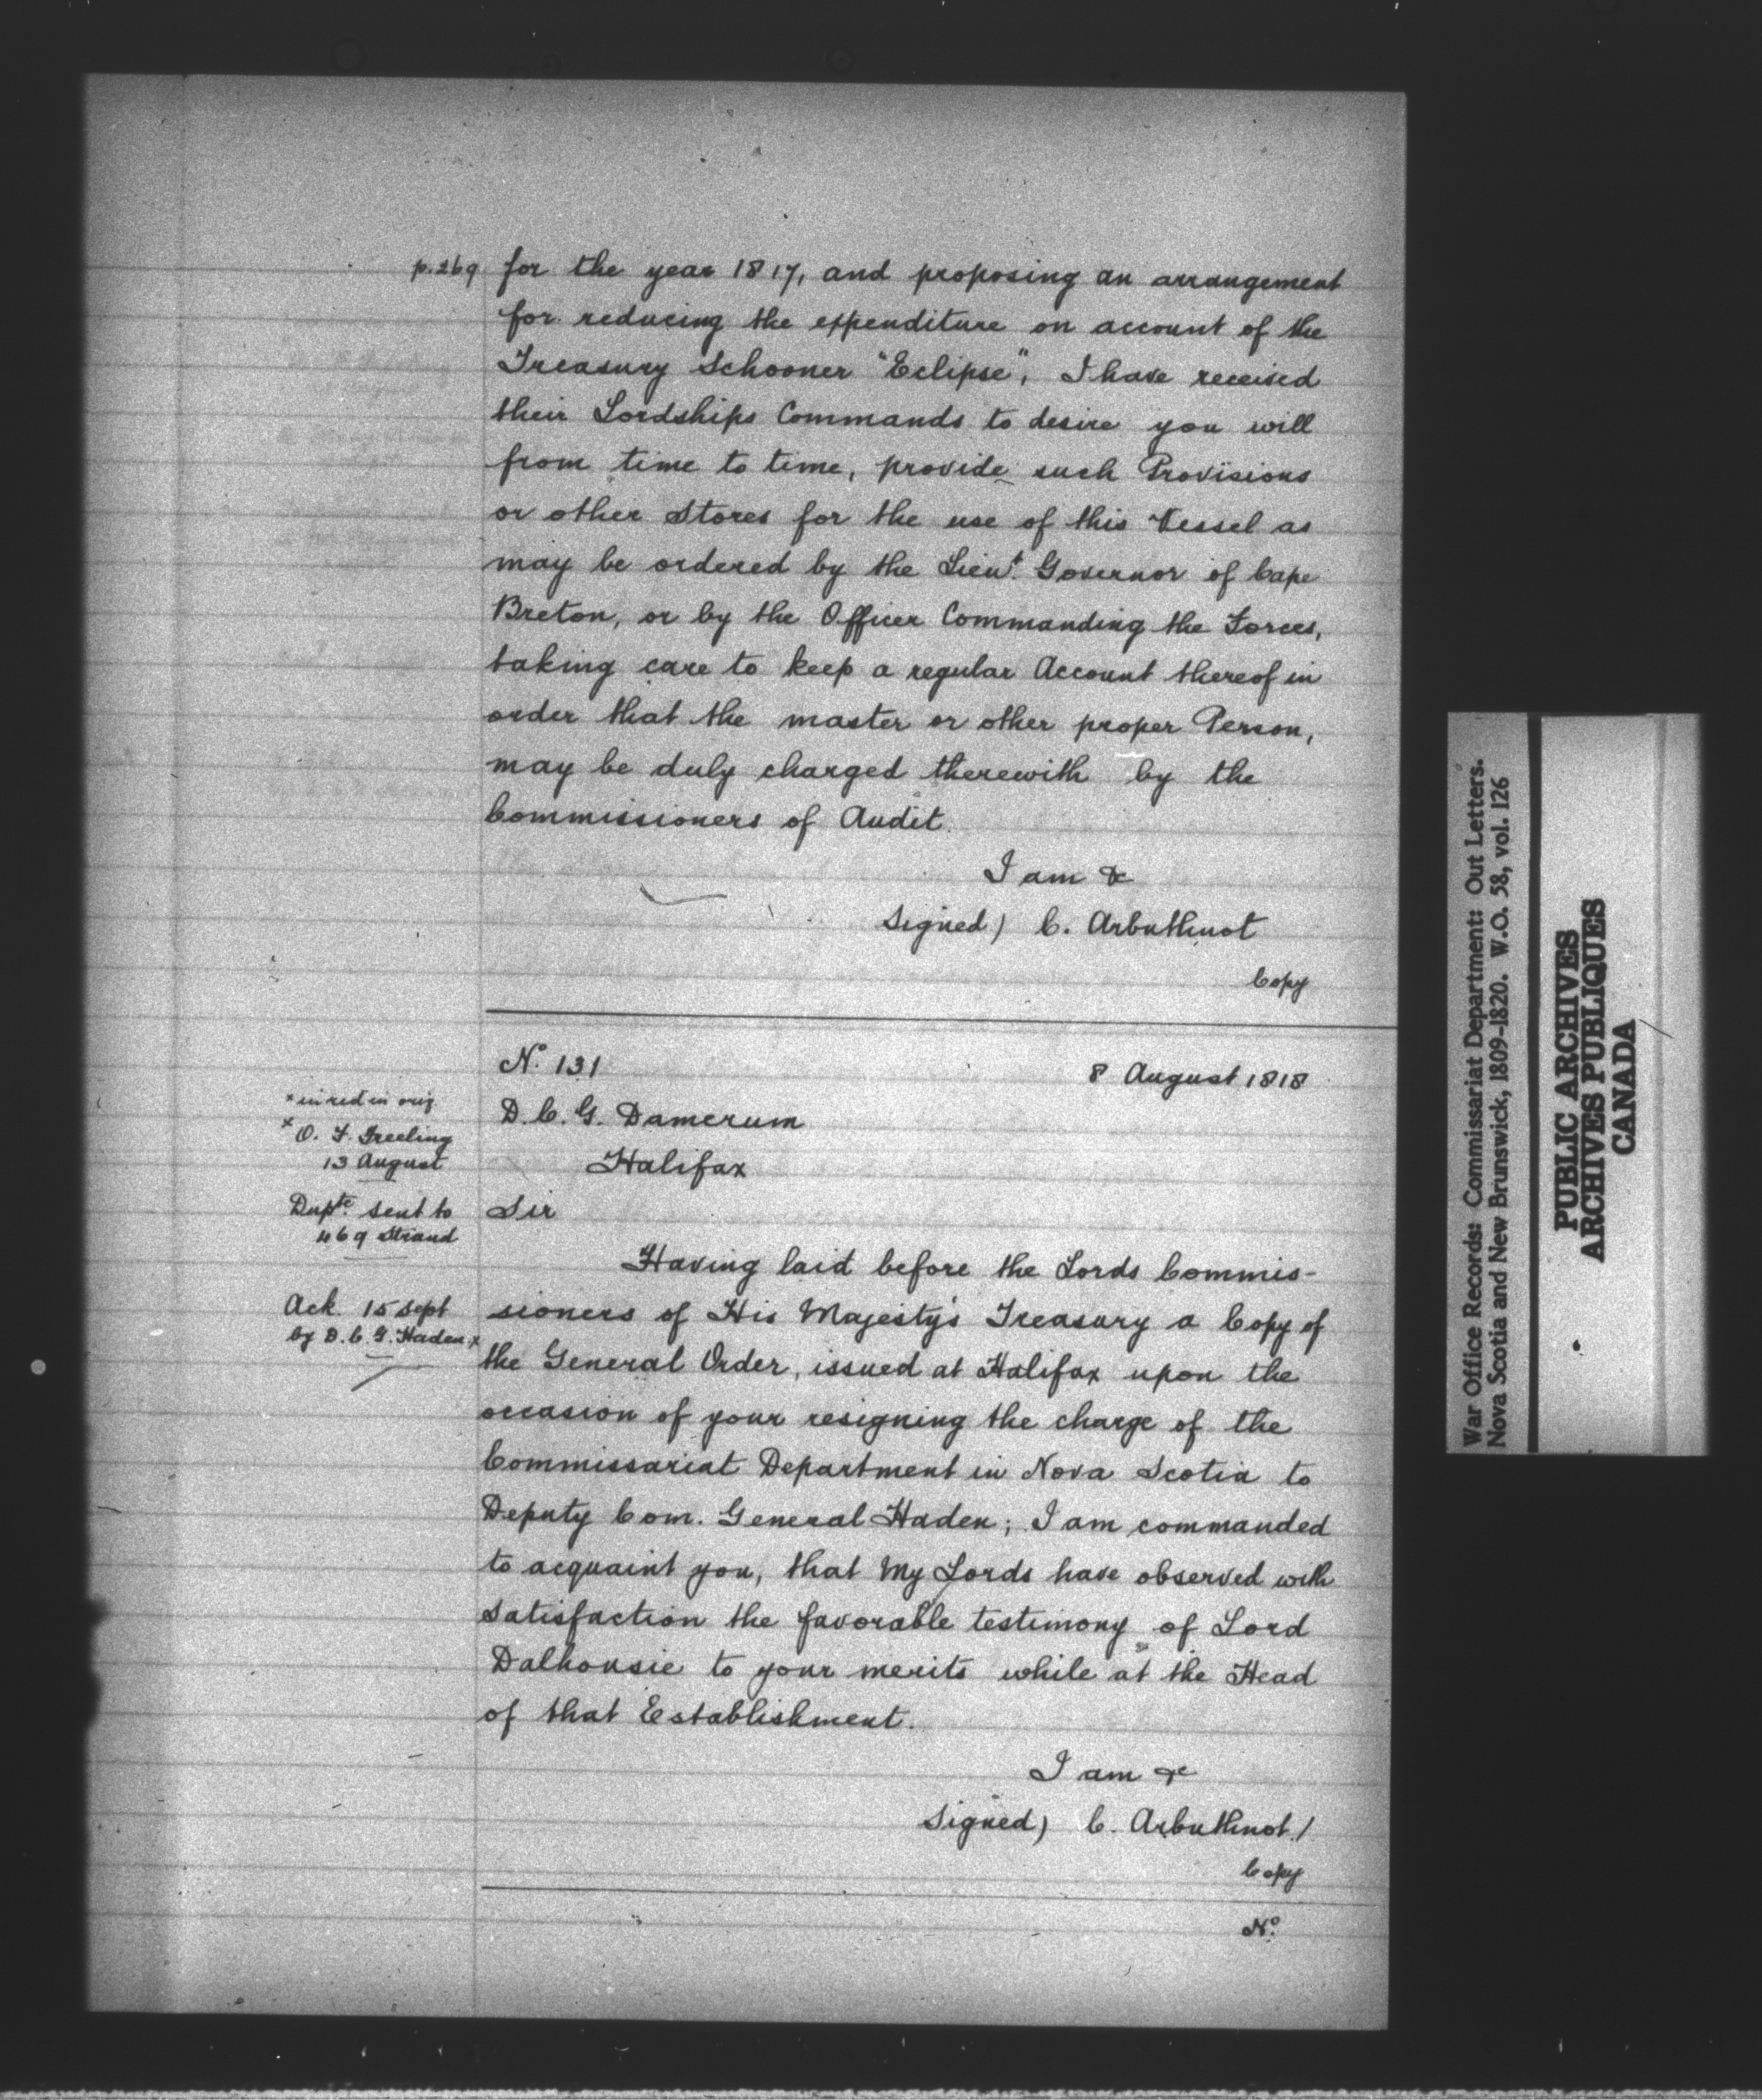 p.269 for the year 1817, and proposing an arrangement
for reducing the expenditure on account of the
Treasury Schooner "Eclipse", I have received
their Lordships Commands to desire you will
from time to time, provide such Provisions
or other Stores for the use of this Vessel as
may be ordered by the Lieut. Governor of Cape
Breton, or by the Officer Commanding the Forces,
taking care to keep a regular Account thereof in
order that the master or other proper Person,
may be duly charged therewith by the
Commissioners of Audit.
I am &c
Signed) C. Arbuthnot
Copy
No. 131
8 August 1818
D. C. G. Damerum
Halifax
Sir
x in red in orig
x O. F. Greeling
13 August
Dupte. sent to
469 Strand
Ack. 15 Sept
by D. C. G. Haden x
Having laid before the Lords Commis-
sioners of His Majesty's Treasury a Copy of
the General Order, issued at Halifax upon the
occasion of your resigning the charge of the
Commissariat Department in Nova Scotia to
Deputy Com. General Haden; I am commanded
to acquaint you, that My Lords have observed with
satisfaction the favorable testimony of Lord
Dalhousie to your merits while at the Head
of that Establishment.
I am &c
Signed) C. Arbuthnot /
Copy
No.
War Office Records: Commissariat Department: Out Letters.
Nova Scotia and New Brunswick, 1809-1820. W.O. 58, vol. 126
PUBLIC ARCHIVES
ARCHIVES PUBLIQUES
CANADA